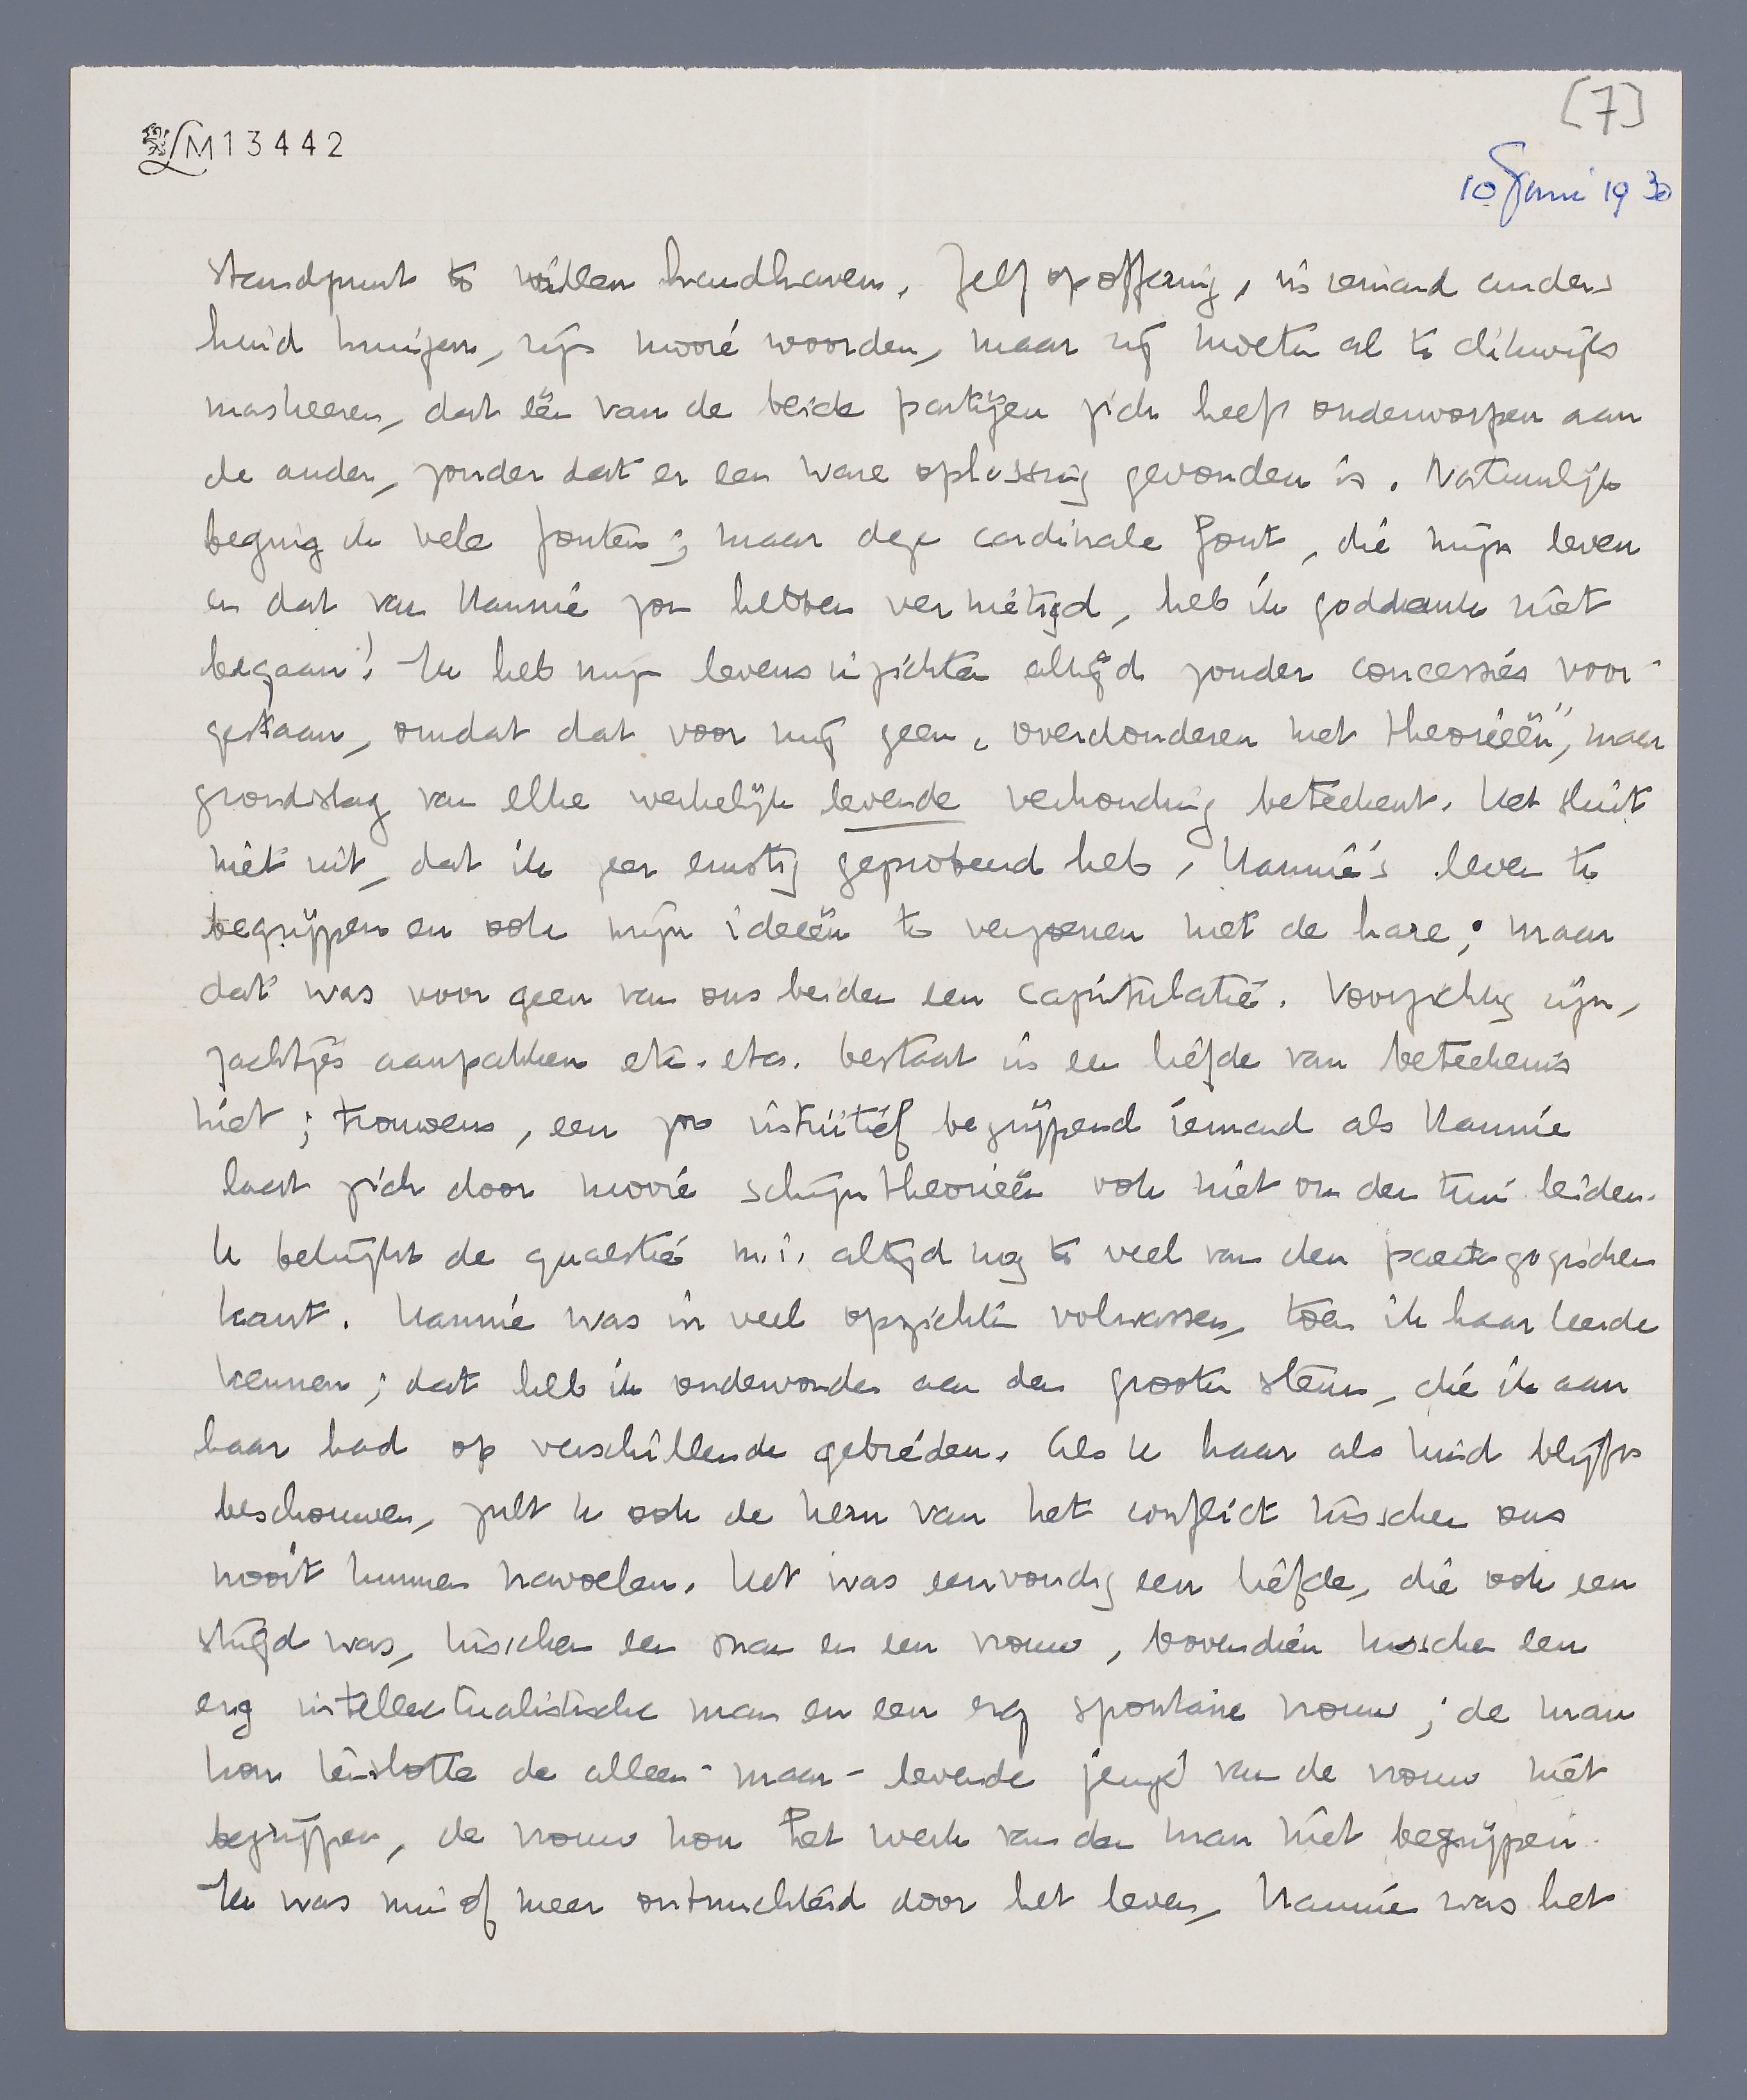 [7]
LM13442
10 Juni 1930
standpunt te willen handhaven. Zelfopoffering, in iemand anders
huid kruipen, zijn mooie woorden, maar zij moeten al te dikwijls
maskeeren, dat één van de beide partijen zich heeft onderworpen aan
de ander, zonder dat er een ware oplossing gevonden is. Natuurlijk
beging ik vele fouten; maar deze cardinale fout, die mijn leven
en dat van Hannie zou hebben vernietigd, heb ik goddank niet
begaan! Ik heb mijn levensinzichten altijd zonder concessies voor-
gestaan, omdat dat voor mij geen „overdonderen met theorieën”, maar
grondslag van elke werkelijk levende verhouding beteekent. Het sluit
niet uit, dat ik zeer ernstig geprobeerd heb, Hannie's leven te
begrijpen en ook mijn ideeën te verzoenen met de hare; maar
dat was voor geen van ons beiden een capitulatie. Voorzichtig zijn,
zachtjes aanpakken etc. etc. bestaat in een liefde van beteekenis
niet; trouwens, een zoo intuïtief begrijpend iemand als Hannie
laat zich door mooie schijntheorieën ook niet om den tuin leiden.
U bekijkt de quaestie m.i. altijd nog te veel van den paedagogischen
kant. Hannie was in veel opzichten volwassen, toen ik haar leerde
kennen; dat heb ik ondervonden aan den grooten steun, die ik aan
haar had op verschillende gebieden. Als U haar als kind blijft
beschouwen, zult U ook de kern van het conflict tusschen ons
nooit kunnen navoelen. Het was eenvoudig een liefde, die ook een
strijd was, tusschen een man en een vrouw, bovendien tusschen een
erg intellectualistische man en een erg spontane vrouw; de man
kon tenslotte de alleen-maar-levende jeugd van de vrouw niet
begrijpen, de vrouw kon het werk van den man niet begrijpen.
Ik was min of meer ontnuchterd door het leven, Hannie was het